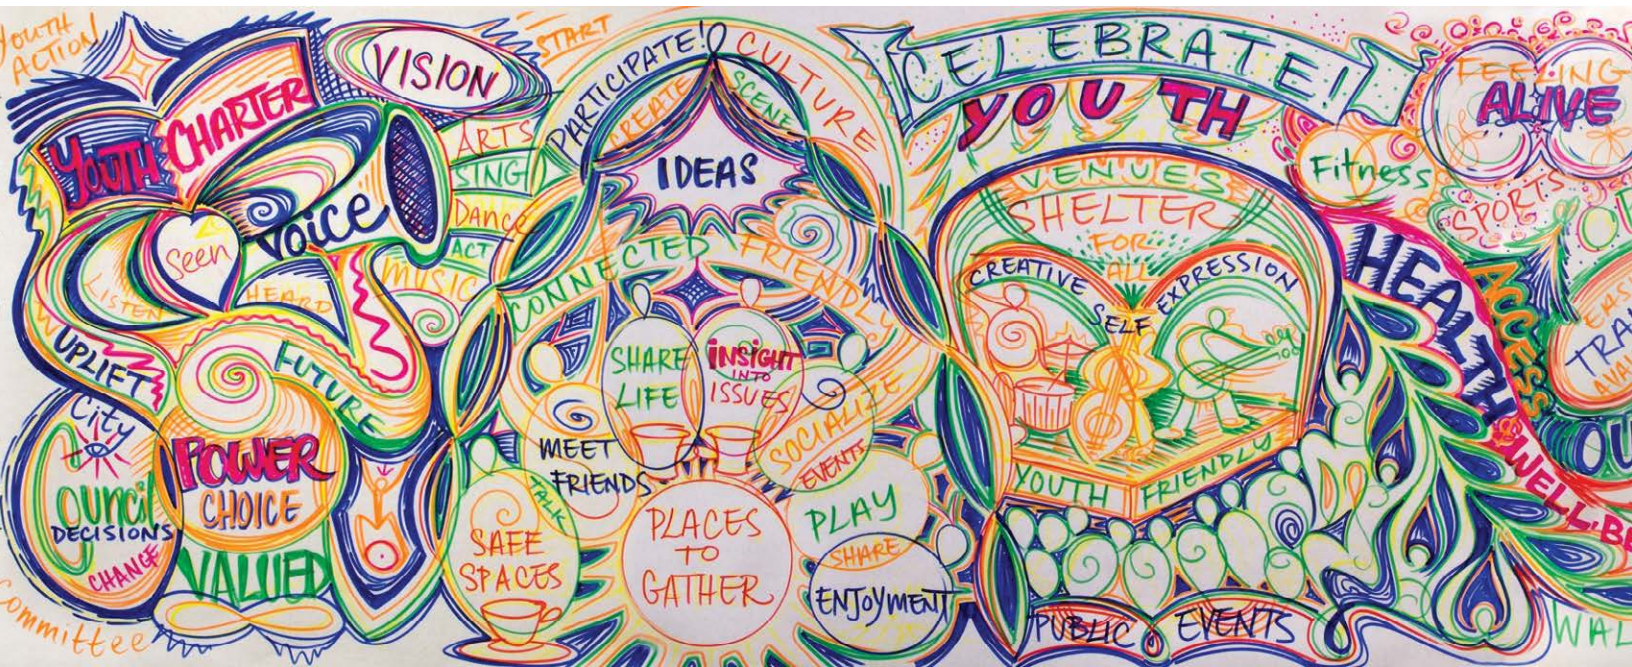 YOUTH
ACTION
YOUTH CHARTER
VISION
Seen
Voice
LISTEN
HEARD
UPLIFT
FUTURE
City
Council
DECISIONS
CHANGE
POWER
CHOICE
VALUED
Committee
START
ARTS
SING
Dance
ACT
MUSIC
PARTICIPATE!
CULTURE
CREATE
SCENE
IDEAS
CONNECTED
FRIENDLY
SHARE
LIFE
INSIGHT
INTO
ISSUES
MEET
FRIENDS
TALK
SOCIALIZE
EVENTS
SAFE
SPACES
PLACES
TO
GATHER
PLAY
SHARE
ENJOYMENT
CELEBRATE!
YOUTH
VENUES
SHELTER
FOR
ALL
CREATIVE
SELF
EXPRESSION
YOUTH FRIENDLY
PUBLIC EVENTS
FEELING
ALIVE
Fitness
SPORTS
HEALTH
&
WELL-BE
ACCESS
EAS
TRA
AVA
OU
WAL